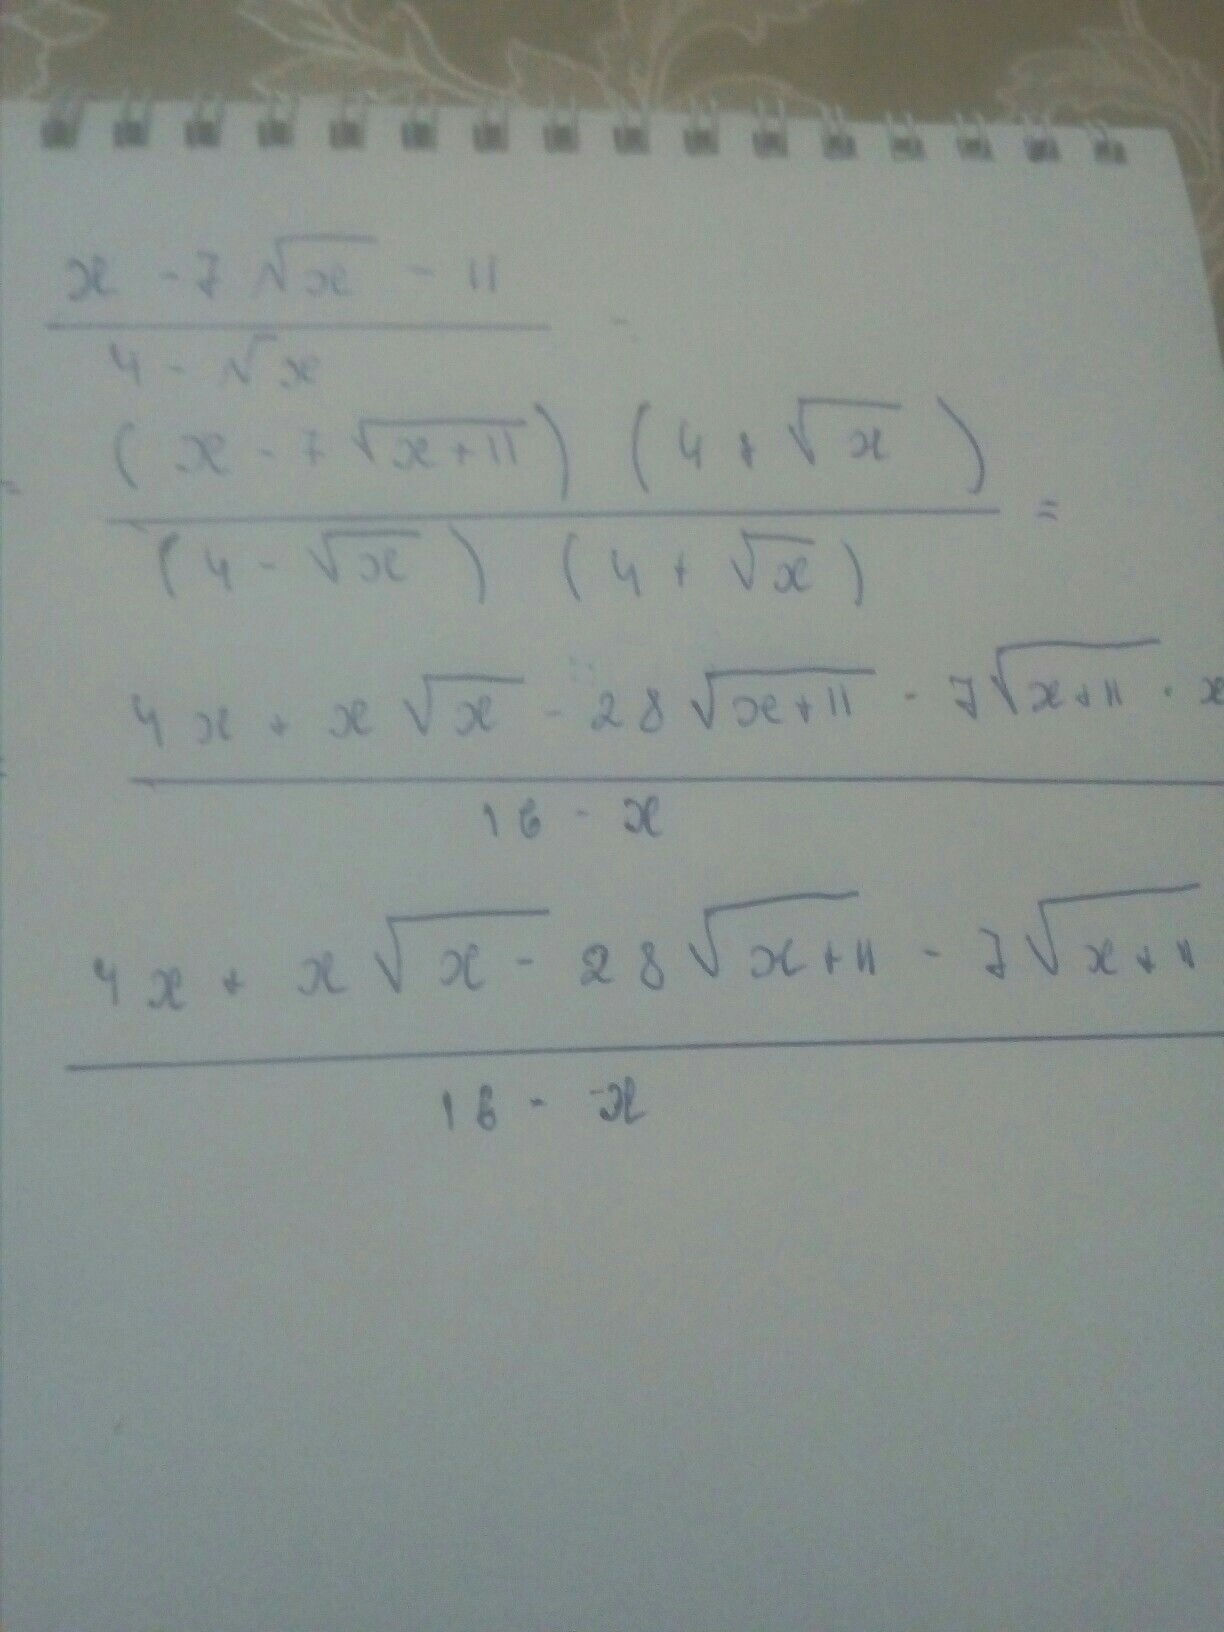 x - 7√x - 11
4 - √x
-
(x - 7√x+11) (4 + √x)
= =
(4 - √x) (4 + √x)
4x + x√x - 28√x+11 - 7√x+11 · x
=
16 - x
4x + x√x - 28√x+11 - 7√x+11
16 - x